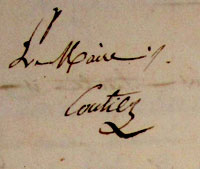 Le Maire
Coutil